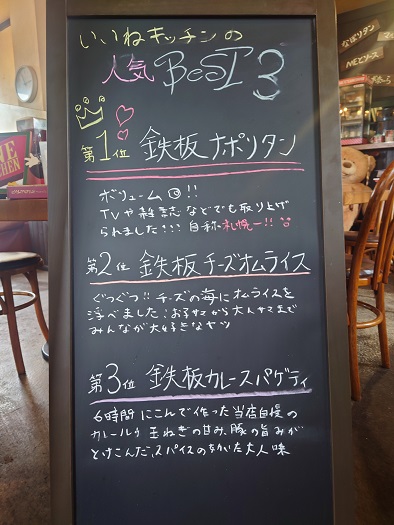 いいねキッチンの
人気 BEST 3
第1位 鉄板ナポリタン
ボリューム◎!!
TVや雑誌などでも取り上げ
られました!!! 自称札幌一!!
第2位 鉄板チーズオムライス
ぐつぐつ!! チーズの海にオムライスを
浮べました! お子サマから大人サマまで
みんなが大好きなヤツ
第3位 鉄板カレースパゲティ
6時間にこんで作った当店自慢の
カレールウ 玉ねぎの甘み、豚の旨みが
とけこんだ、スパイスのきいた大人味
なぽりタン